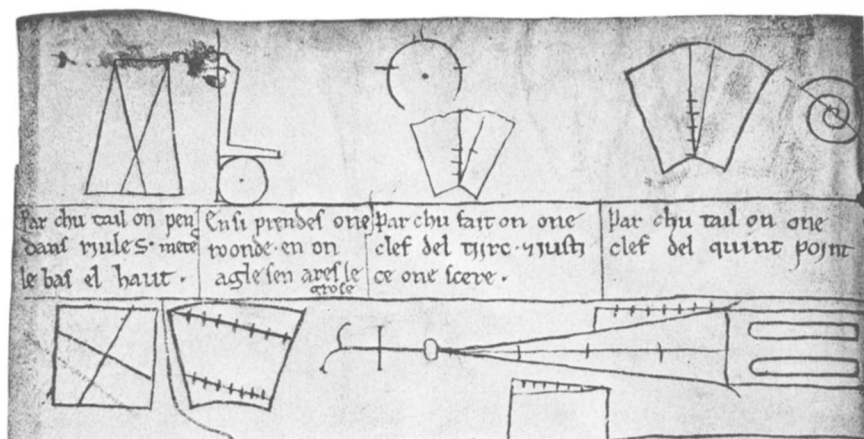 Par chu tail on pen
dans riules S· mete
le bas el haut ·
Ensi prendes one
roonde · en on
agle sen ares le
grose
Par chu fait on one
clef del tiirc · ⁊ justi
ce one scere ·
Par chu tail on one
clef del quint point